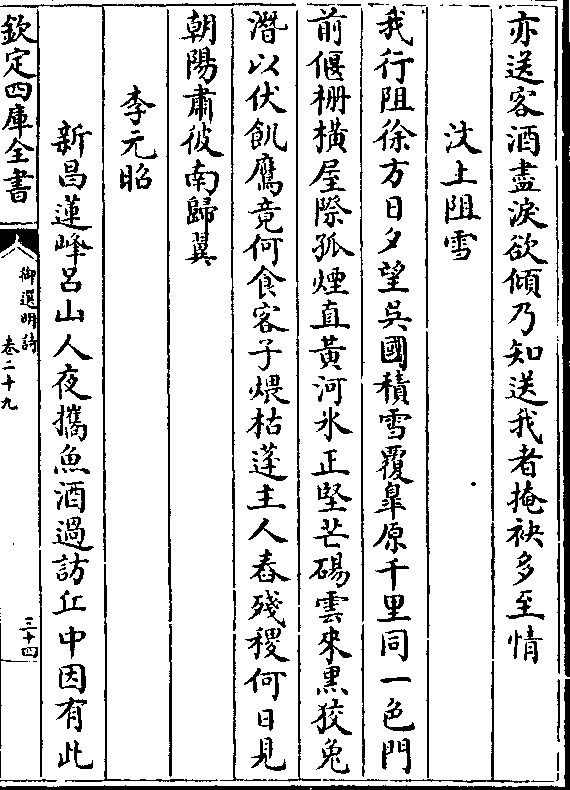 亦送客酒盡淚欲傾乃知送我者掩袂多至情
汶上阻雪
我行阻徐方日夕望吳國積雪覆皐原千里同一色門
前偃栅橫屋際孤煙直黃河氷正堅芒碭雲來黒狡兔
潛以伏飢鷹竟何食客子煨枯蓬主人舂殘稷何日見
朝陽肅彼南歸翼
李元昭
新昌蓮峰呂山人夜攜魚酒過訪丘中因有此
欽定四庫全書
御選明詩
卷二十九
三十四